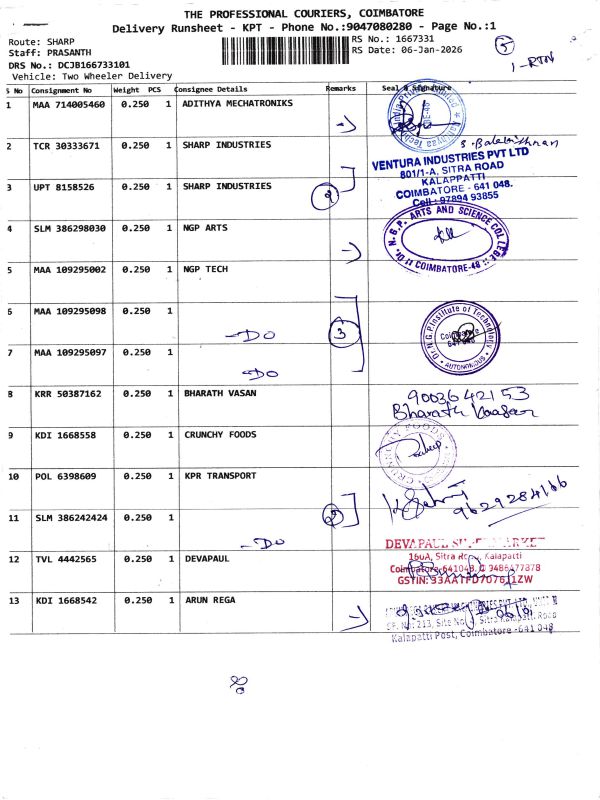 THE PROFESSIONAL COURIERS, COIMBATORE
Delivery Runsheet - KPT - Phone No.:9047080280 - Page No.:1
Route: SHARP
Staff: PRASANTH
DRS No.: DCJB166733101
Vehicle: Two Wheeler Delivery
RS No.: 1667331
RS Date: 06-Jan-2026
5
1-RTN
S No Consignment No Weight PCS Consignee Details Remarks Seal & Signature
1 MAA 714005460 0.250 1 ADITHYA MECHATRONIKS
2 TCR 30333671 0.250 1 SHARP INDUSTRIES
3 UPT 8158526 0.250 1 SHARP INDUSTRIES 2
VENTURA INDUSTRIES PVT LTD
801/1-A, SITRA ROAD
KALAPPATTI
COIMBATORE - 641 048.
Cell : 97894 93855
4 SLM 386298030 0.250 1 NGP ARTS
Dr. N.G.P. ARTS AND SCIENCE COLLEGE
COIMBATORE-48
5 MAA 109295002 0.250 1 NGP TECH
6 MAA 109295098 0.250 1 -DO 3
Dr. N.G.P. Institute of Technology
Coimbatore
641 048
AUTONOMOUS
7 MAA 109295097 0.250 1 -DO
8 KRR 50387162 0.250 1 BHARATH VASAN
9003642153
Bharath Vaasan
9 KDI 1668558 0.250 1 CRUNCHY FOODS
CRUNCHY FOODS
10 POL 6398609 0.250 1 KPR TRANSPORT
9629284166
11 SLM 386242424 0.250 1 -DO 2
12 TVL 4442565 0.250 1 DEVAPAUL
DEVAPAUL SUPER MARKET
Sitra Road, Kalapatti
Coimbatore-641048, 9486477878
GSTIN: 33AATFD7076
1ZW
13 KDI 1668542 0.250 1 ARUN REGA
SF. No: 213, Site No. 4, Sitra Kalapatti Road
Kalapatti Post, Coimbatore -641 048